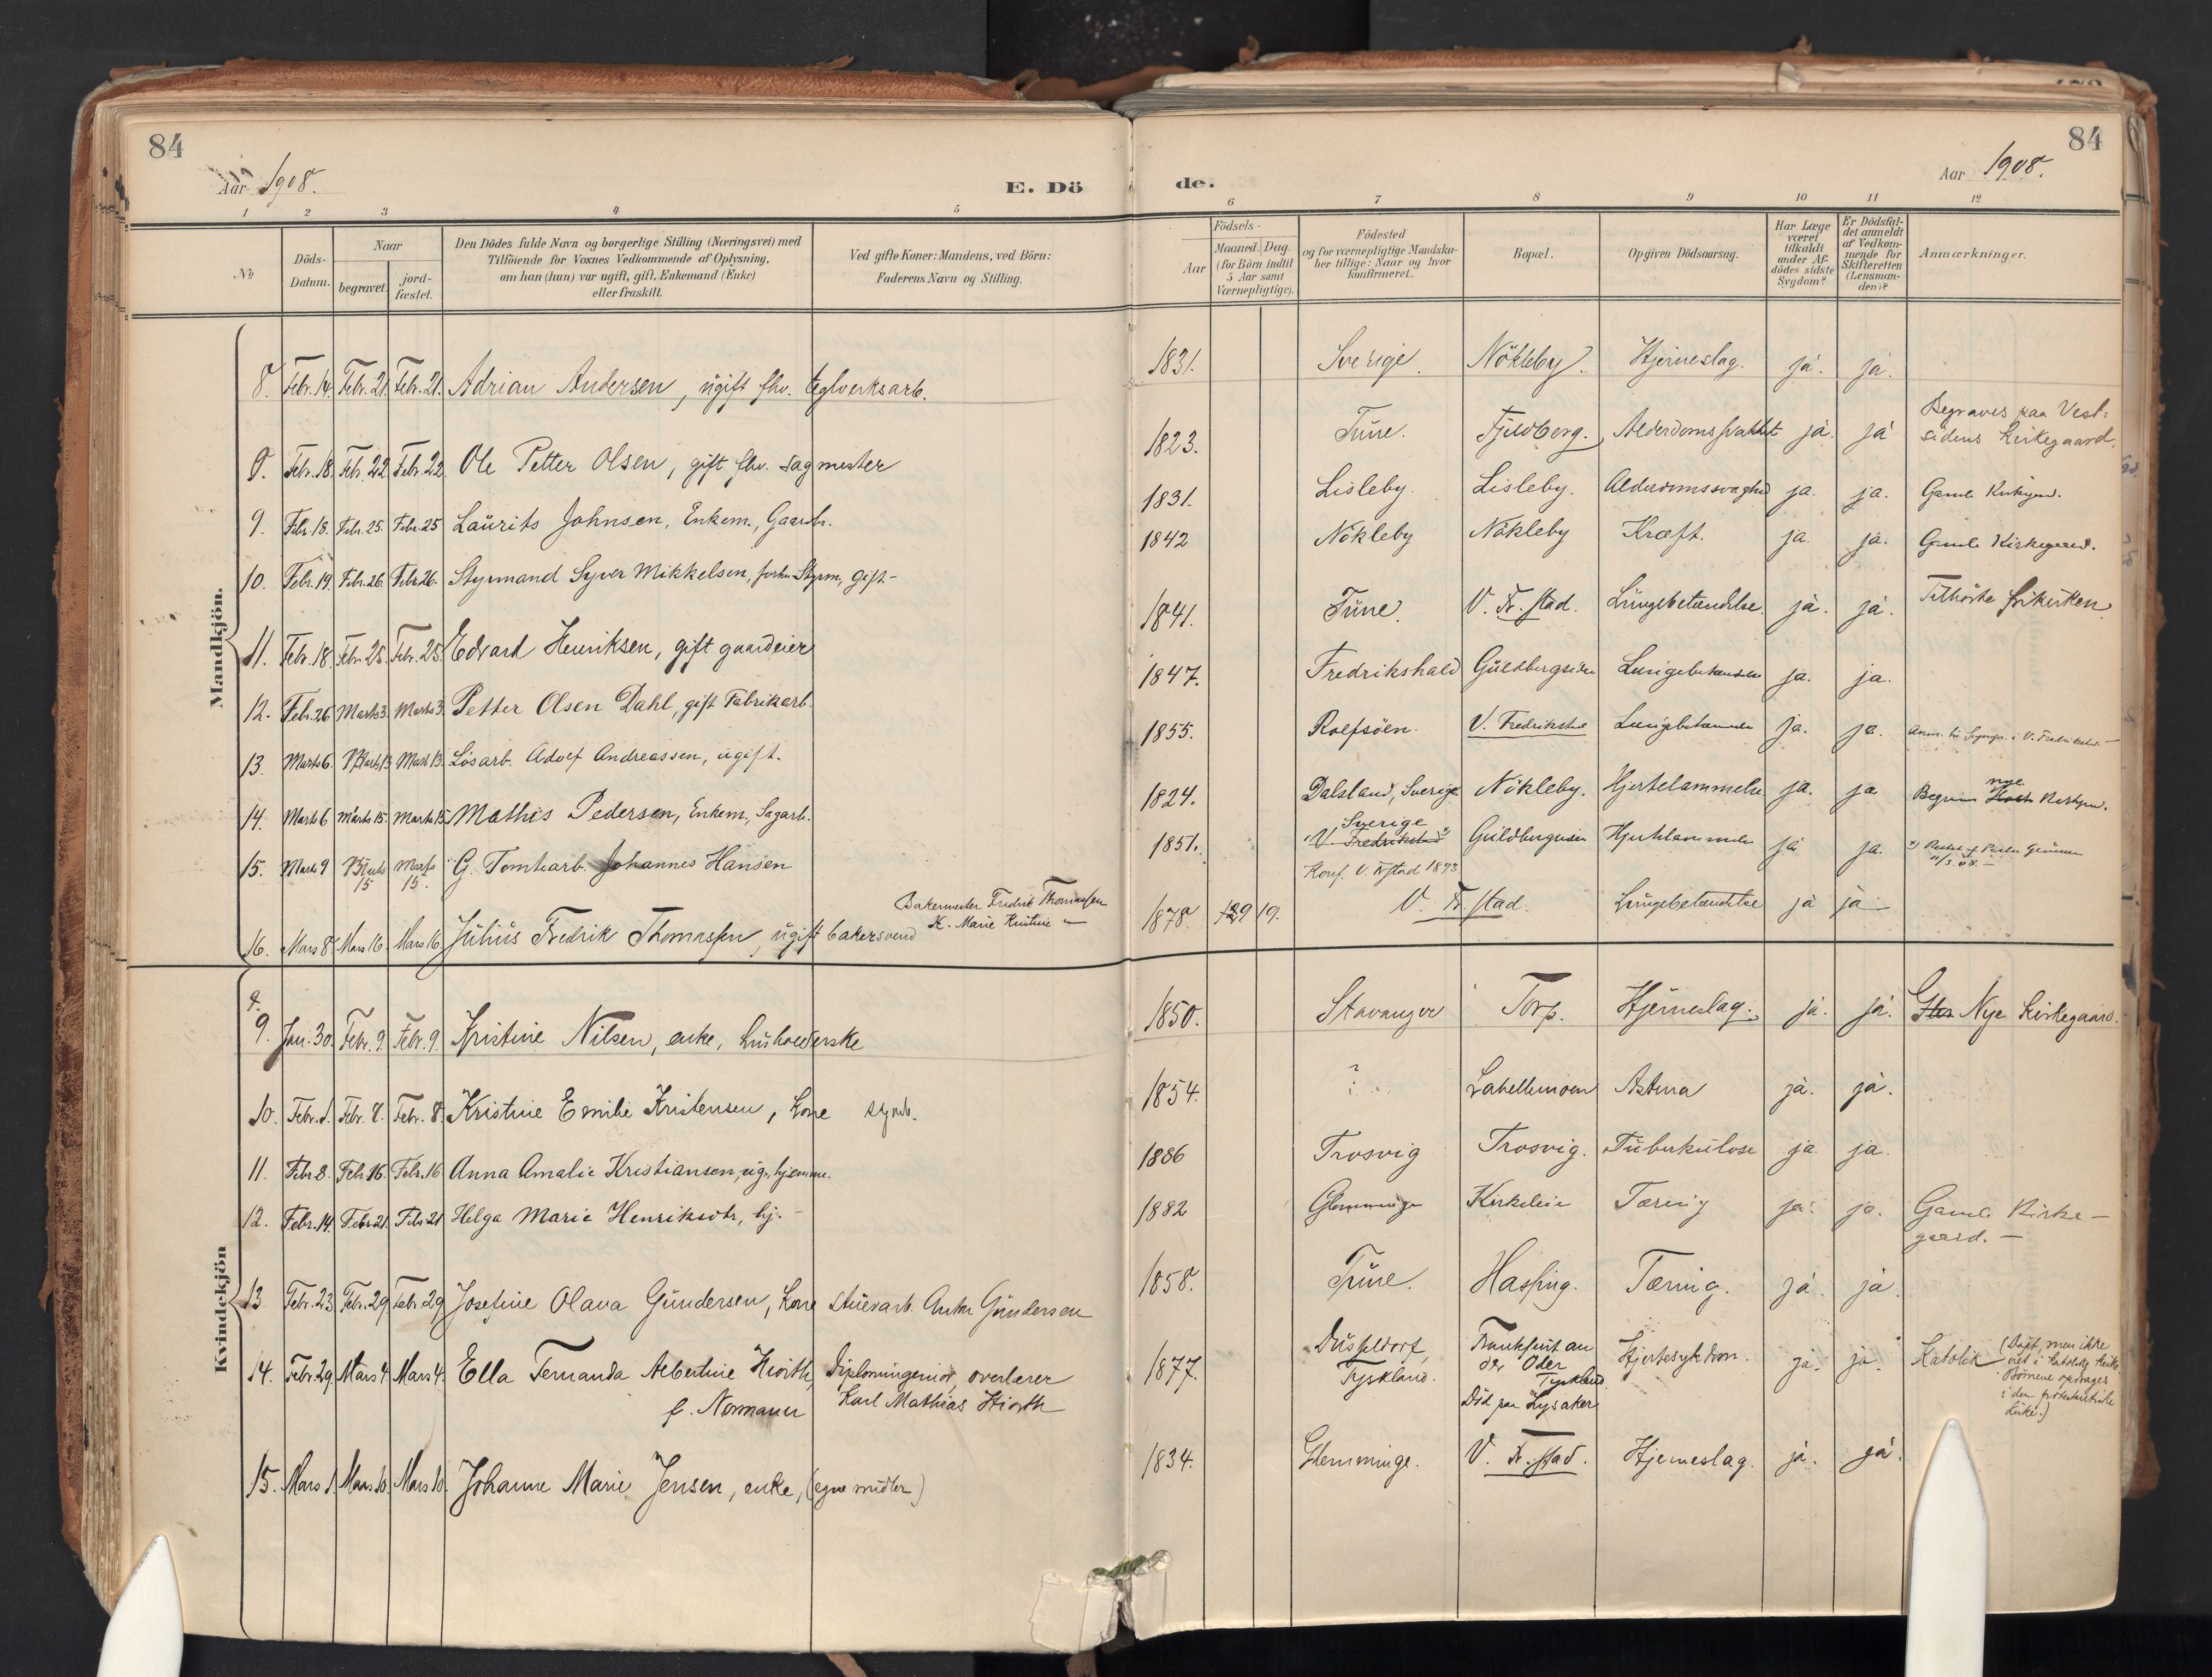 84
84
Aar 1908.
E. Dö
de.
Aar 1908.
1 2 3 4 5 6 7 8 9 10 11 12
No
Döds-Datum.
Naar
begravet.
jord-fæstet.
Den Dödes fulde Navn og borgerlige Stilling (Næringsvei) med
Tilföiende for Voxnes Vedkommende af Oplysning,
om han (hun) var ugift, gift, Enkemand (Enke)
eller fraskilt.
Ved gifte Koner: Mandens, ved Börn:
Faderens Navn og Stilling.
Födsels-
Aar
Maaned. Dag.
(for Börn indtil
5 Aar samt
Værnepligtige).
Födested
og for værnepligtige Mandska-
ber tillige: Naar og hvor
konfirmeret.
Bopæl.
Opgiven Dödsaarsag.
Har Læge
været
tilkaldt
under Af-
dödes sidste
Sygdom?
Er Dödsfal-
det anmeldt
af Vedkom-
mende for
Skifteretten
(Lensman-
den)?
Anmærkninger.
Mandkjön.
8. Febr. 14. Febr. 21. Febr. 21. Adrian Andersen, ugift fhv. teglverksarb. 1831. Sverige. Nökleby. Hjerneslag. ja. ja.
9. Febr. 18. Febr. 22 Febr. 22. Ole Petter Olsen, gift fhv. sagmester 1823. Tune. Fjeldberg. ja. ja
Begraves paa Vest-
sidens Kirkegaard.
9. Febr. 18. Febr. 25. Febr. 25 Laurits Johnsen, Enkem., Gaardbr. 1831. Lisleby. Lisleby. Alderdomssvaghed ja. ja. Gamle
10. Febr. 19. Febr. 26. Febr. 26. Styrmand Syver Mikkelsen, forhv. Styrm., gift- 1842 Nökleby Nökleby Kræft. ja. ja. Gamle Kirkegaard.
11. Febr. 18. Febr. 25. Febr. 25. Edvard Henriksen, gift gaardeier 1841. Tune. V. Fr.stad. Lungebetændelse. ja. ja. Tilhörte frikirken
12. Febr. 26 Marts 3. Marts 3. Petter Olsen Dahl, gift Fabrikarb. 1847. Fredrikshald Guldbergsiden Lungebetændelse ja. ja.
13. Marts 6. Marts 13 Marts 13. Lösarb. Adolf Andreassen, ugift. 1855. Rolfsöen. V. Fredrikstad Lungebetændelse ja. ja.
14. Marts 6 Marts 15. Marts 15. Mathis Pedersen, Enkem., Sagarb. 1824. Dalsland, Sverige Nökleby. Hjertelammelse ja. ja
nye
15. Marts 9 Marts 15 Marts 15. G. Tomtearb. Johannes Hansen 1851. V. Fredrikstad Guldbergsiden Hjertelammelse ja ja.
Sverige
Konf. V. Fr.stad 1893
16. Mars 8. Mars 16. Mars 16. Julius Fredrik Thomassen, ugift bakersvend
Bakermester Fredrik Thomassen
H. Marie Kristine "
1878. 9 19. V. Fr.stad. Lungebetændelse ja ja
Kvindekjön
9. Jan. 30. Febr. 9. Febr. 9. Kristine Nilsen, enke, husholderske 1850. Stavanger Torp. Hjerneslag. ja. ja. Nye Kirkegaard.
10. Febr. 1. Febr. 8. Febr. 8. Kristine Emilie Kristensen, kone 1854. ? Labellmoen Astma ja. ja.
11. Febr. 8. Febr. 16. Febr. 16 Anna Amalie Kristiansen, ug., hjemme. 1886 Trosvig Trosvig. Tuberkulose ja ja.
12. Febr. 14. Febr. 21. Febr. 21 Helga Marie Henriksdtr., hj. - 1882 Glemminge Kirkeleie Tæring ja. ja. Gamle Kirke-
gaard. -
13 Febr. 23 Febr. 29 Febr. 29 Josefine Olava Gundersen, kone stuerarb. Anton Gundersen 1858. Tune. Hassing. Tæring. ja. ja.
14. Febr. 29. Mars 4. Mars 4. Ella Fernanda Albertine Hiorth, Diplomingeniör, overlærer
f. Normann Karl Mathias Hiorth
1877. Düsseldorf,
Tyskland.
Frankfurt an
der Oder
Tyskland
Död paa Lysaker
Hjertesykdom. ja. ja.
Katolik (Döpt, men ikke
viet i katolsk kirke.
Börnene opdrages
i den protestantiske
kirke.)
15. Mars 1. Mars 10. Mars 10. Johanne Marie Jensen, enke, (egne midler) 1834. Glemminge. V. Fr.stad. Hjerneslag. ja. ja.